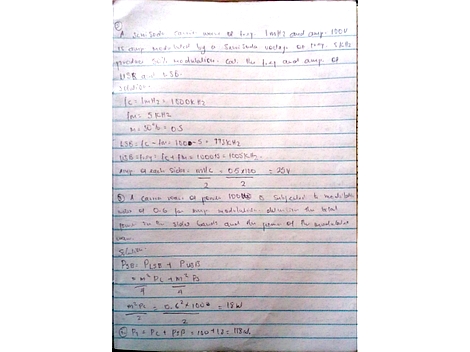 A sinusoidal carrier wave of freq. 1MHz and amp. 100V
is amp modulated by a sinusoidal voltage of freq. 5KHz
50% modulation. Cal. the freq and amp of
USB and LSB.
Solution.
fc = 1MHz = 1000KHz
fm = 5KHz
m = 50% = 0.5
LSB = fc - fm = 1000 - 5 = 995KHz
USB = fc + fm = 1000+5 = 1005KHz
Amp of each = mVc/2 = 0.5x100/2 = 25V
A carrier wave of power 100W is subjected to
of 0.6 for amp modulation determine the total
power in the side bands and the power of the modulated
wave.
Solution.
PSB = PLSB + PUSB
= m²Pc/4 + m²Pc/4
m²Pc/2 = 0.6²x100/2 = 18W
Pt = Pc + PSB = 100+18 = 118W.